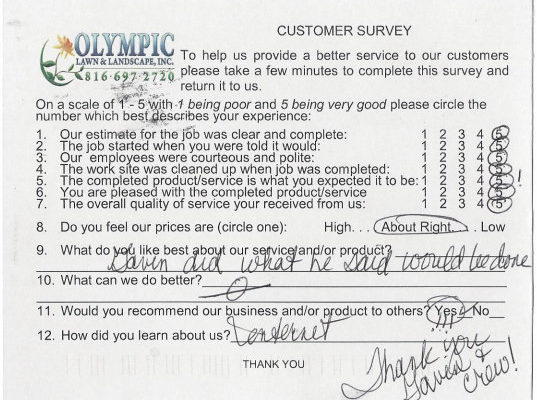 CUSTOMER SURVEY
OLYMPIC
LAWN & LANDSCAPE, INC.
816-697-2720
To help us provide a better service to our customers
please take a few minutes to complete this survey and
return it to us.
On a scale of 1 - 5 with 1 being poor and 5 being very good please circle the
number which best describes your experience:
1. Our estimate for the job was clear and complete: 1 2 3 4 5
2. The job started when you were told it would: 1 2 3 4 5
3. Our employees were courteous and polite: 1 2 3 4 5
4. The work site was cleaned up when job was completed: 1 2 3 4 5
5. The completed product/service is what you expected it to be: 1 2 3 4 5 !
6. You are pleased with the completed product/service 1 2 3 4 5
7. The overall quality of service your received from us: 1 2 3 4 5
8. Do you feel our prices are (circle one): High. . . About Right. . . Low
9. What do you like best about our service and/or product?
Gavin did what he said would be done
10. What can we do better? O
11. Would you recommend our business and/or product to others? Yes No
!!!
12. How did you learn about us? Internet
THANK YOU
Thank you
Gavin &
crew!